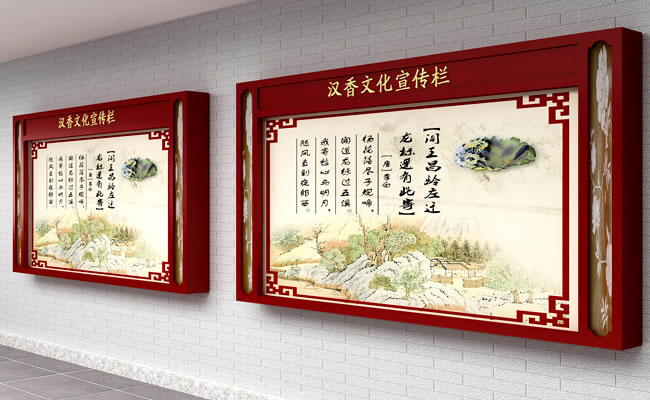 汉香文化宣传栏
【闻王昌龄左迁
龙标遥有此寄】
【唐】李白
杨花落尽子规啼，
闻道龙标过五溪。
我寄愁心与明月，
随风直到夜郎西。
汉香文化宣传栏
【闻王昌龄左迁
龙标遥有此寄】
【唐】李白
杨花落尽子规啼，
闻道龙标过五溪。
我寄愁心与明月，
随风直到夜郎西。